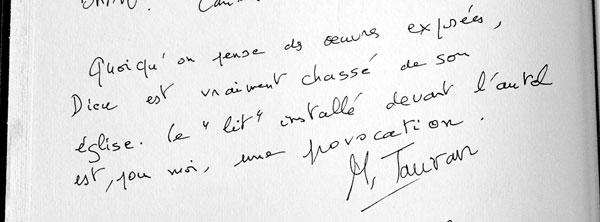 Quoiqu'on pense des œuvres exposées,
Dieu est vraiment chassé de son
église. Le "lit" installé devant l'autel
est, pour moi, une provocation.
M. Tauran